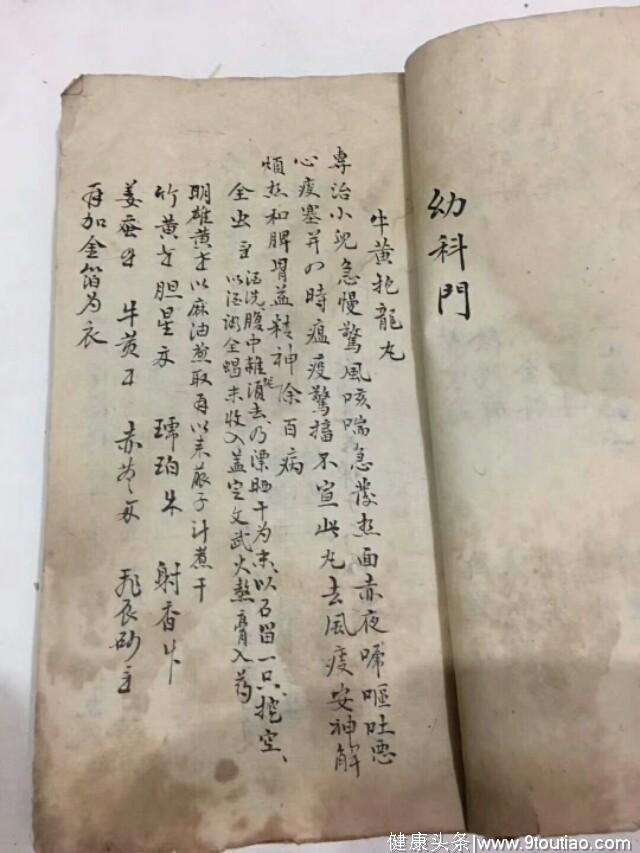 幼科門
牛黃抱龍丸
專治小兒急慢驚風咳喘急發熱面赤夜啼嘔吐惡
心痰塞並四時瘟疫驚搐不宣此丸去風痰安神解
煩熱和脾胃益精神除百病
全虫 酒洗腹中雜須去乃漂晒干為末以石留一只挖空、
以酒 全蝎末收入蓋定文武火熬膏入药
明雄黄 以麻油煎取再以来菔子汁煮干
竹黄 胆星 琥珀 射香
姜蚕 牛黄 赤苓 飛辰砂
再加金箔為衣
健康头条|www.9toutiao.com